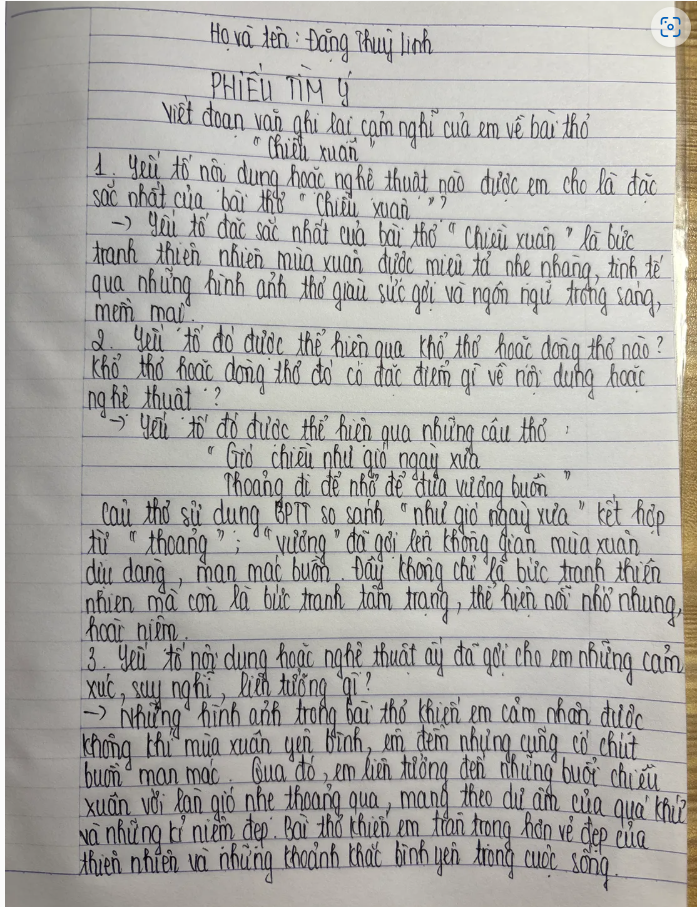 Họ và tên: Đặng Thuỳ Linh
PHIẾU TÌM Ý
Viết đoạn văn ghi lại cảm nghĩ của em về bài thơ
"Chiều xuân"
1. Yếu tố nội dung hoặc nghệ thuật nào được em cho là đặc
sắc nhất của bài thơ "Chiều xuân"?
→ Yếu tố đặc sắc nhất của bài thơ "Chiều xuân" là bức
tranh thiên nhiên mùa xuân được miêu tả nhẹ nhàng, tinh tế
qua những hình ảnh thơ giàu sức gợi và ngôn ngữ trong sáng,
mềm mại.
2. Yếu tố đó được thể hiện qua khổ thơ hoặc dòng thơ nào?
Khổ thơ hoặc dòng thơ đó có đặc điểm gì về nội dung hoặc
nghệ thuật?
→ Yếu tố đó được thể hiện qua những câu thơ:
"Gió chiều như gió ngày xưa
Thoảng đi để nhớ để đưa vương buồn"
Câu thơ sử dụng BPTT so sánh "như gió ngày xưa" kết hợp
từ "thoảng"; "vương" đã gợi lên không gian mùa xuân
dịu dàng, man mác buồn. Đây không chỉ là bức tranh thiên
nhiên mà còn là bức tranh tâm trạng, thể hiện nỗi nhớ nhung,
hoài niệm.
3. Yếu tố nội dung hoặc nghệ thuật ấy đã gợi cho em những cảm
xúc, suy nghĩ, liên tưởng gì?
→ Những hình ảnh trong bài thơ khiến em cảm nhận được
không khí mùa xuân yên bình, êm đềm nhưng cũng có chút
buồn man mác. Qua đó, em liên tưởng đến những buổi chiều
xuân với làn gió nhẹ thoảng qua, mang theo dư âm của quá khứ
và những kỉ niệm đẹp. Bài thơ khiến em trân trọng hơn vẻ đẹp của
thiên nhiên và những khoảnh khắc bình yên trong cuộc sống.